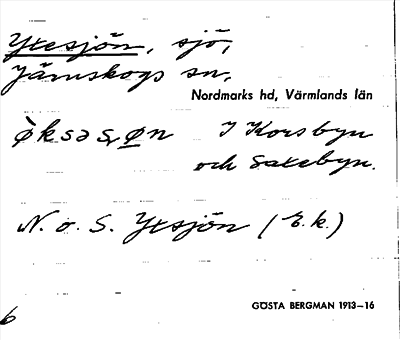 Ytesjön, sjö,
Järnskogs sn.
Nordmarks hd, Värmlands län
I Korsbyn
och Satebyn.
N. o. S. Ytsjön (E.k.)
GÖSTA BERGMAN 1913–16
6